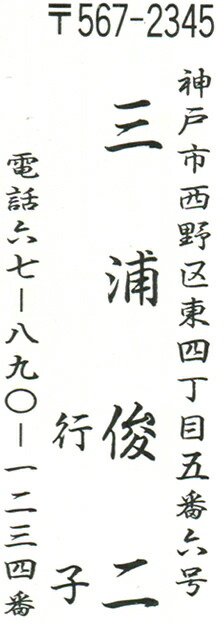 〒567-2345
神戸市西野区東四丁目五番六号
三浦俊二
行子
電話六七ー八九〇ー一二三四番